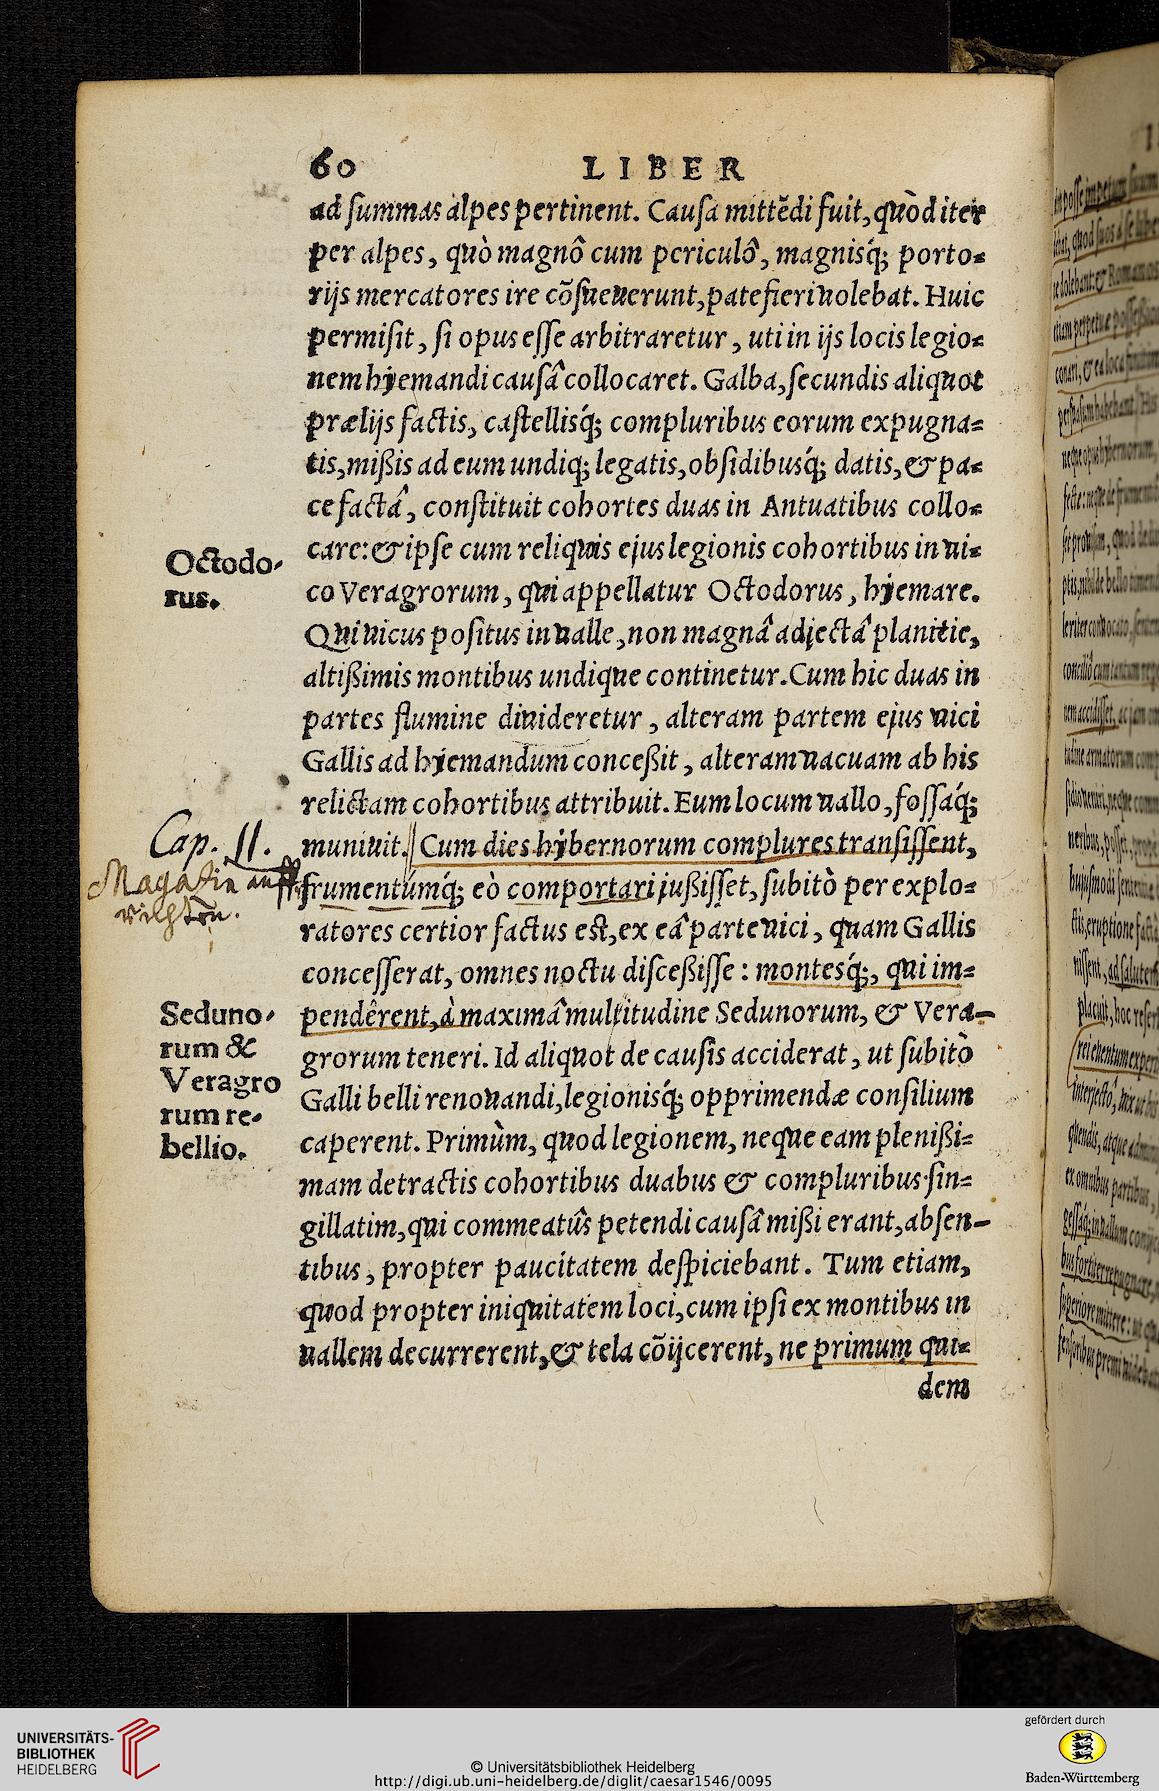 60 LIBER
ad ſummas alpes pertinent. Cauſa mittẽdi fuit, quòd iter
per alpes, quò magnô cum periculô, magnisq́; porto⸗
rijs mercatores ire cõſueuerunt, patefieri uolebat. Huic
permiſit, ſi opus eſſe arbitraretur, uti in ijs locis legio⸗
nem hyemandi cauſâ collocaret. Galba, ſecundis aliquot
prælijs factis, caſtellisq́; compluribus eorum expugna⸗
tis, mißis ad eum undiq; legatis, obſidibusq́; datis, & pa⸗
ce factâ, conſtituit cohortes duas in Antuatibus collo⸗
care: & ipſe cum reliquis ejus legionis cohortibus in ui⸗
co Veragrorum, qui appellatur Octodorus, hyemare.
Qui uicus poſitus in ualle, non magnâ adjectâ planitie,
altißimis montibus undique continetur. Cum hic duas in
partes flumine diuideretur, alteram partem ejus uici
Gallis ad hyemandum conceßit, alteram uacuam ab his
relictam cohortibus attribuit. Eum locum uallo, foſſaq́;
muniuit. Cum dies hybernorum complures transiſſent,
frumentúmq́; eò comportari jußiſſet, ſubitò per explo⸗
ratores certior factus eſt, ex eâ parte uici, quam Gallis
conceſſerat, omnes noctu diſceßiſſe: montesq́;, qui im⸗
pendêrent, à maximâ multitudine Sedunorum, & Vera-
grorum teneri. Id aliquot de cauſis acciderat, ut ſubitò
Galli belli renouandi, legionisq́; opprimendæ conſilium
caperent. Primùm, quod legionem, neque eam plenißi⸗
mam detractis cohortibus duabus & compluribus ſin⸗
gillatim, qui commeatûs petendi cauſâ mißi erant, abſen-
tibus, propter paucitatem deſpiciebant. Tum etiam,
quod propter iniquitatem loci, cum ipſi ex montibus in
uallem decurrerent, & tela cõijcerent, ne primum qui⸗
dem
Octodo-
rus.
Cap. II.
Magazin auff
richten.
Seduno-
rum &
Veragro
rum re-
bellio.
UNIVERSITÄTS-
BIBLIOTHEK
HEIDELBERG
© Universitätsbibliothek Heidelberg
http://digi.ub.uni-heidelberg.de/diglit/caesar1546/0095
gefördert durch
Baden-Württemberg